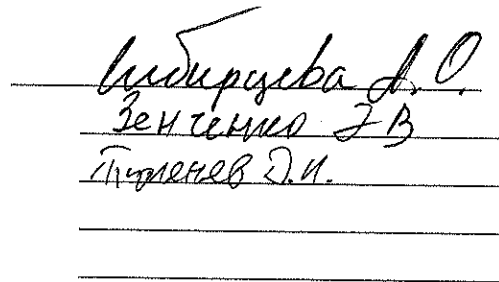 Сибирцева А.О.
Зенченко Э В
Туренев Д.И.